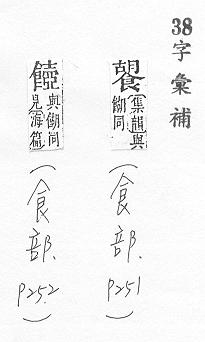 38字彙補
集韻與
餬同
(食部.
P251
)
與餬同
見海篇
(食部.
P252
)